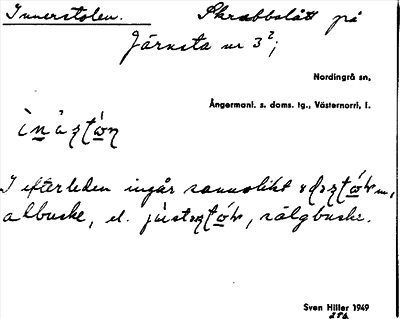 Innerstolen. Skrabbslått på
Järnsta nr 3²;
Nordingrå sn,
Ångermanl. s. doms. tg., Västernorrl. l.
I efterleden ingår sannolikt
albuske, el. sälgbuske.
Sven Hiller 1949